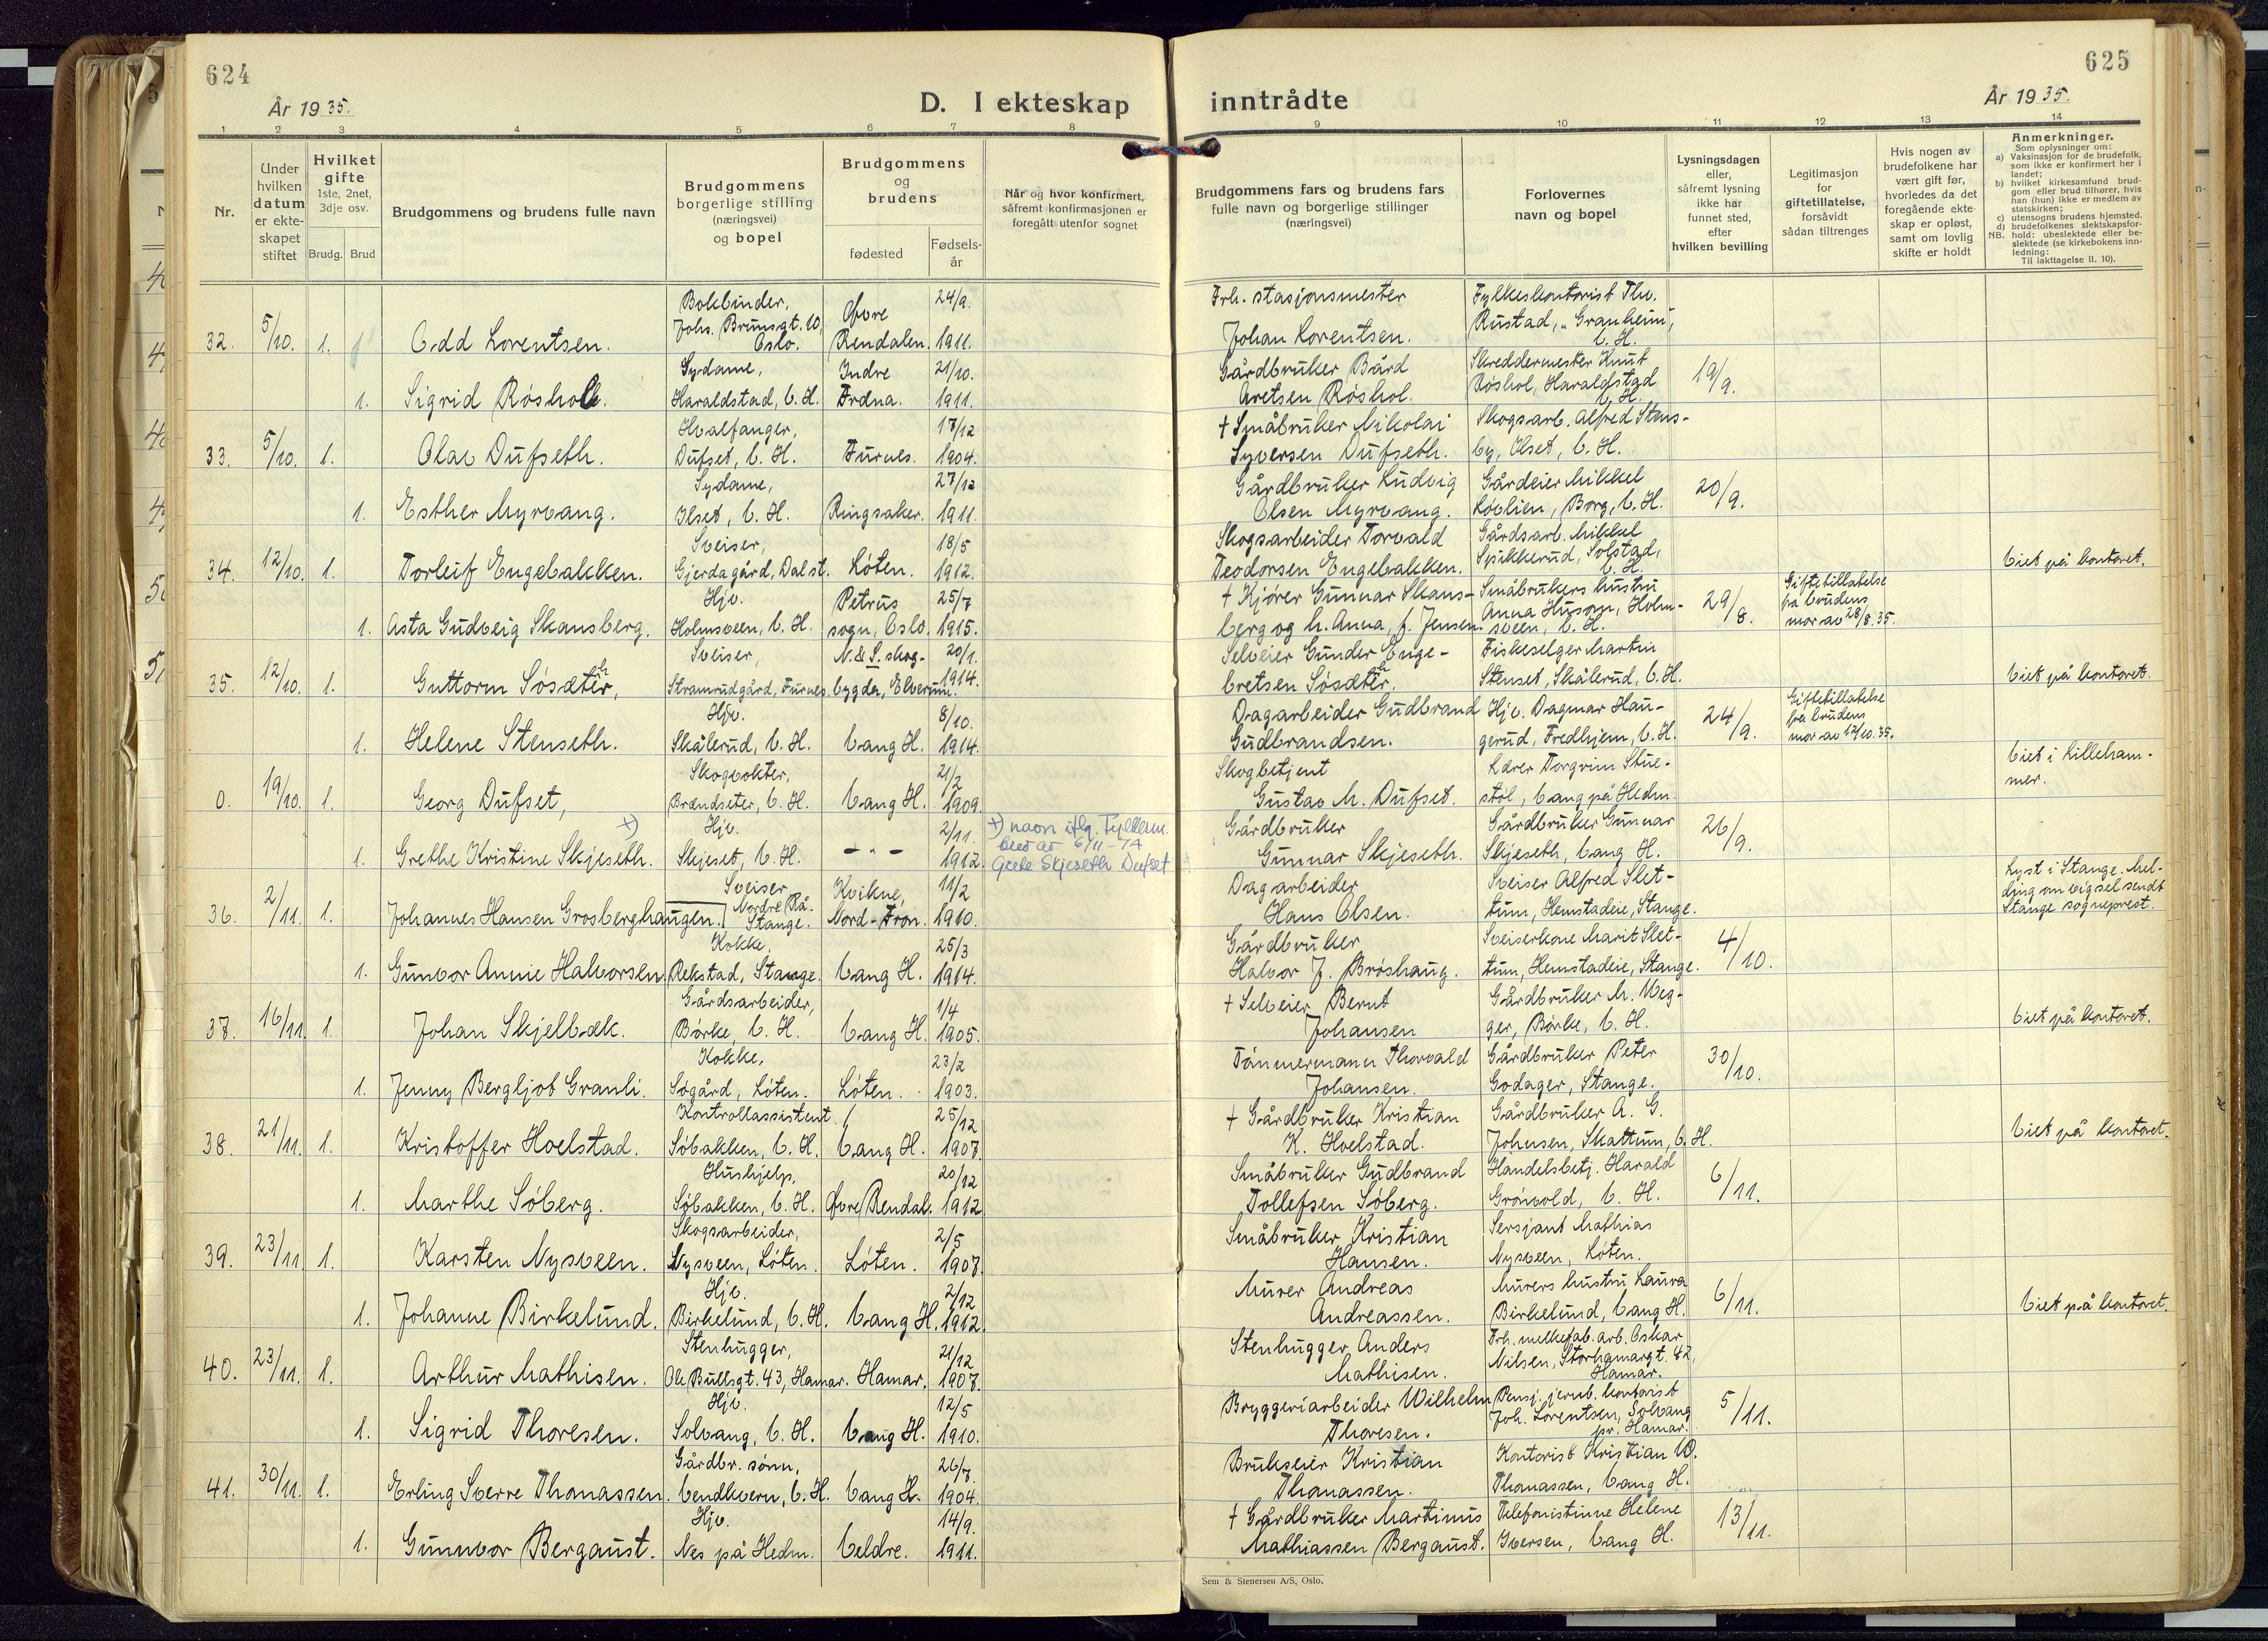 624
År 1935.
D. I ekteskap
1 2 3 4 5 6 7 8
Nr.
Under hvilken datum er ekteskapet stiftet
Hvilket gifte 1ste, 2net, 3dje osv.
Brudg. Brud
Brudgommens og brudens fulle navn
Brudgommens borgerlige stilling (næringsvei) og bopel
Brudgommens og brudens
fødested
Fødselsår
Når og hvor konfirmert, såfremt konfirmasjonen er foregått utenfor sognet
32. 5/10. 1. Odd Lorentsen. Bokbinder, Johs. Brunsgt. 10, Oslo. Øvre Rendalen. 24/9. 1911.
1. Sigrid Røshol. Sydame, Haraldstad, V. H. Indre Fræna. 21/10. 1911.
33. 5/10. 1. Olav Dufseth. Hvalfanger, Dufset, V. H. Furnes. 17/12 1904.
1. Esther Myrvang. Sydame, Ilset, V. H. Ringsaker. 27/12 1911.
34. 12/10. 1. Torleif Engebakken. Sveiser, Gjerda gård, Dal st. Løten. 18/5 1912.
1. Asta Gudveig Skansberg. Hjv. Holmsveen, V. H. Petrus sogn, Oslo. 25/7 1915.
35. 12/10. 1. Guttorm Søsæter, Sveiser, Stramrudgård, Furnes. N. & S. skogbygda, Elverum. 20/1. 1914.
1. Helene Stenseth. Hjv. Skålerud, V. H. Vang H. 8/10. 1914.
0. 19/10. 1. Georg Dufset, Skogvokter, Brændseter, V. H. Vang H. 21/2 1909.
1. Grethe Kristine Skjeseth. +) Hjv. Skjeset, V. H. — " — 2/11. 1912.
+) navn iflg. Fylkesm. brev av 6/11-74
Grete Skjeseth Dufset
36. 2/11. 1. Johannes Hansen Grosberghaugen. Sveiser Nordre Rå. Stange. Kvikne, Nord-Fron. 11/2 1910.
1. Gunvor Annie Halvorsen. Kokke, Rekstad, Stange. Vang H. 25/3 1914.
37. 16/11. 1. Johan Skjelbæk. Gårdsarbeider, Børke, V. H. Vang H. 1/4 1905.
1. Jenny Bergljot Granli. Kokke, Søgård, Løten. Løten. 23/2 1903.
38. 21/11. 1. Kristoffer Hoelstad. Kontrollassistent. Søbakken, V. H. Vang H. 25/12 1907.
1. Marthe Søberg. Hushjelp. Søbakken, V. H. Øvre Rendal. 20/12 1912
39. 23/11. 1. Karsten Nysveen. Skogsarbeider, Nysveen, Løten. Løten. 2/5 1907.
1. Johanne Birkelund. Hjv. Birkelund, V. H. Vang H. 2/12 1912.
40. 23/11. 1. Arthur Mathisen. Stenhugger, Ole Bullsgt. 43, Hamar. Hamar. 21/12 1907.
1. Sigrid Thoresen. Hjv. Solvang, V. H. Vang H. 12/5 1910.
41. 30/11. 1. Erling Sverre Thomassen. Gårdbr. sønn, Vendkvern, V. H. Vang H. 26/7. 1904.
1. Gunnvor Bergaust. Hjv. Nes på Hedm. Veldre. 14/9. 1911.
625
inntrådte
År 1935.
9 10 11 12 13 14
Brudgommens fars og brudens fars fulle navn og borgerlige stillinger (næringsvei)
Forlovernes navn og bopel
Lysningsdagen eller, såfremt lysning ikke har funnet sted, efter hvilken bevilling
Legitimasjon for giftetillatelse, forsåvidt sådan tiltrenges
Hvis nogen av brudefolkene har vært gift før, hvorledes da det foregående ekteskap er opløst, samt om lovlig skifte er holdt
Anmerkninger.
Som oplysninger om:
a) Vaksinasjon for de brudefolk, som ikke er konfirmert her i landet;
b) hvilket kirkesamfund brudgom eller brud tilhører, hvis han (hun) ikke er medlem av statskirken;
c) utensogns brudens hjemsted.
d) brudefolkenes slektskapsforhold: ubeslektede eller beslektede (se kirkebokens innledning:
NB.
Til iakttagelse II. 10).
Frh. stasjonsmester Johan Lorentsen. Fylkeskontorist Thv. Rustad, "Granheim", V. H.
Gårdbruker Bård Aretsen Røshol. Skreddermester Knut Røshol, Haraldstad V. H. 19/9.
+ Småbruker Nikolai Syversen Dufseth. Skogsarb. Alfred Stensby, Ilset, V. H.
Gårdbruker Ludvig Olsen Myrvang. Gårdeier Mikkel Løvlien, Borg, V. H. 20/9.
Skogsarbeider Torvald Teodorsen Engebakken. Gårdsarb. Mikkel Spikkerud, Solstad, V. H. Viet på kontoret.
+ Kjører Gunnar Skansberg og h. Anna, f. Jensen. Småbrukers hustru Anna Husom, Holmsveen, V. H. 29/8. Giftetillatelse fra brudens mor av 28/8.35.
Selveier Gunder Engebretsen Søsæter. Fiskeselger Martin Stenset, Skålerud, V. H. Viet på kontoret.
Dagarbeider Gudbrand Gudbrandsen. Hjv. Dagmar Haugerud, Fredhjem, V. H. 24/9. Giftetillatelse fra brudens mor av 12/10.35.
Skogbetjent Gustav M. Dufset. Lærer Torgrim Stuestøl, Vang på Hedm. Viet i Lillehammer.
Gårdbruker Gunnar Skjeseth. Gårdbruker Gunnar Skjeseth, Vang H. 26/9.
Dagarbeider Hans Olsen. Sveiser Alfred Slettum, Hemstadeie, Stange. Lyst i Stange. Melding om vigsel sendt Stange sogneprest.
Gårdbruker Halvor J. Brøshaug. Sveiserkone Marit Slettum, Hemstadeie, Stange. 4/10.
+ Selveier Bernt Johansen Gårdbruker M. Wegger, Børke, V. H. Viet på kontoret.
Tømmermann Thorvald Johansen. Gårdbruker Peter Godager, Stange. 30/10.
+ Gårdbruker Kristian K. Hoelstad. Gårdbruker A. G. Johnsen, Skattum, V. H. Viet på kontoret.
Småbruker Gudbrand Tollefsen Søberg. Handelsbetj. Harald Grønvold, V. H. 6/11.
Småbruker Kristian Hansen. Sersjant Mathias Nysveen, Løten.
Murer Andreas Andreassen. Murers hustru Laura Birkelund, Vang H. 6/11. Viet på kontoret.
Stenhugger Anders Mathisen. Frh. melkefab. arb. Oskar Nilsen, Storhamargt. 82, Hamar.
Bryggeriarbeider Wilhelm Thoresen. Pensj. jernb. kontorist Joh. Lorentsen, Solvang pr. Hamar. 5/11.
Brukseier Kristian Thomassen. Kontorist Kristian W. Thomassen, Vang H.
+ Gårdbruker Martinus Mathiassen Bergaust. Telefonistinne Helene Iversen, Vang H. 13/11.
Sem & Stenersen A/S, Oslo.